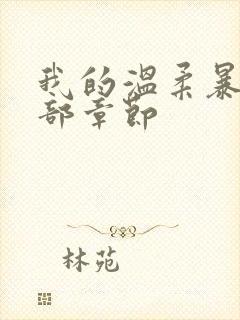 我的温柔暴
部章节
林苑